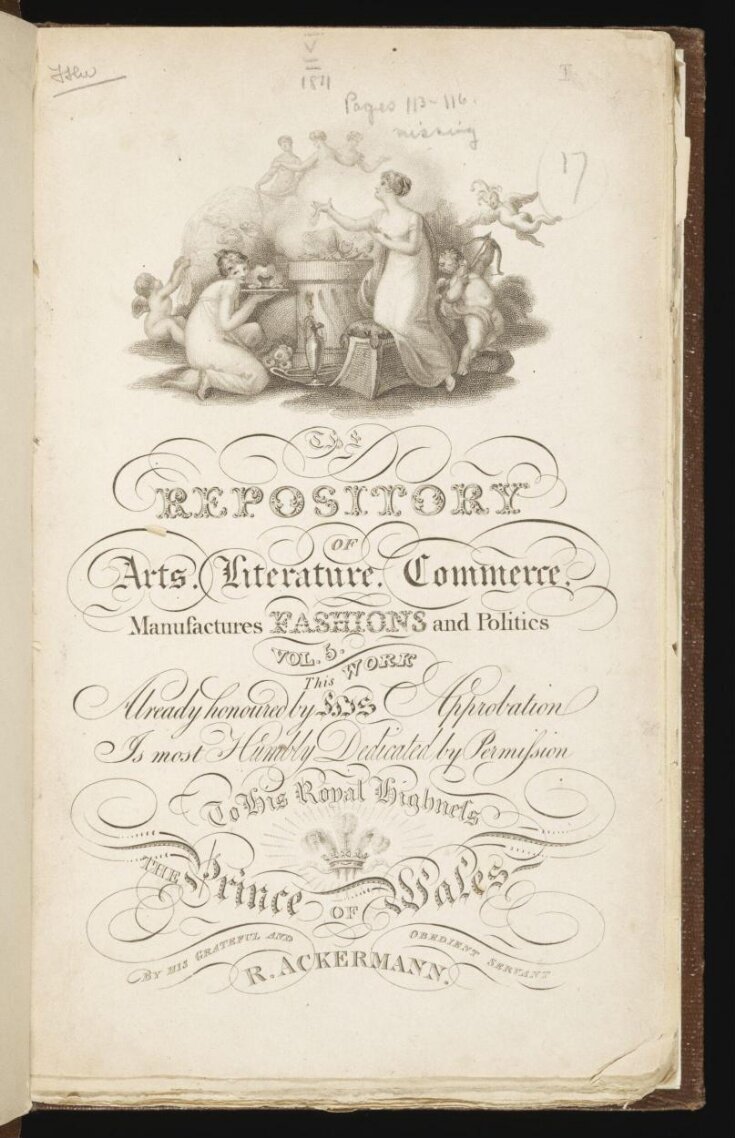 V
1811
I
Pages 113-116.
missing
17
THE
REPOSITORY
OF
Arts, Literature, Commerce,
Manufactures FASHIONS and Politics
VOL. 5.
This WORK
Already honoured by HIS Approbation
Is most Humbly Dedicated by Permiſsion
To His Royal Highneſs
THE Prince OF Wales
BY HIS GRATEFUL AND OBEDIENT SERVANT
R. ACKERMANN.